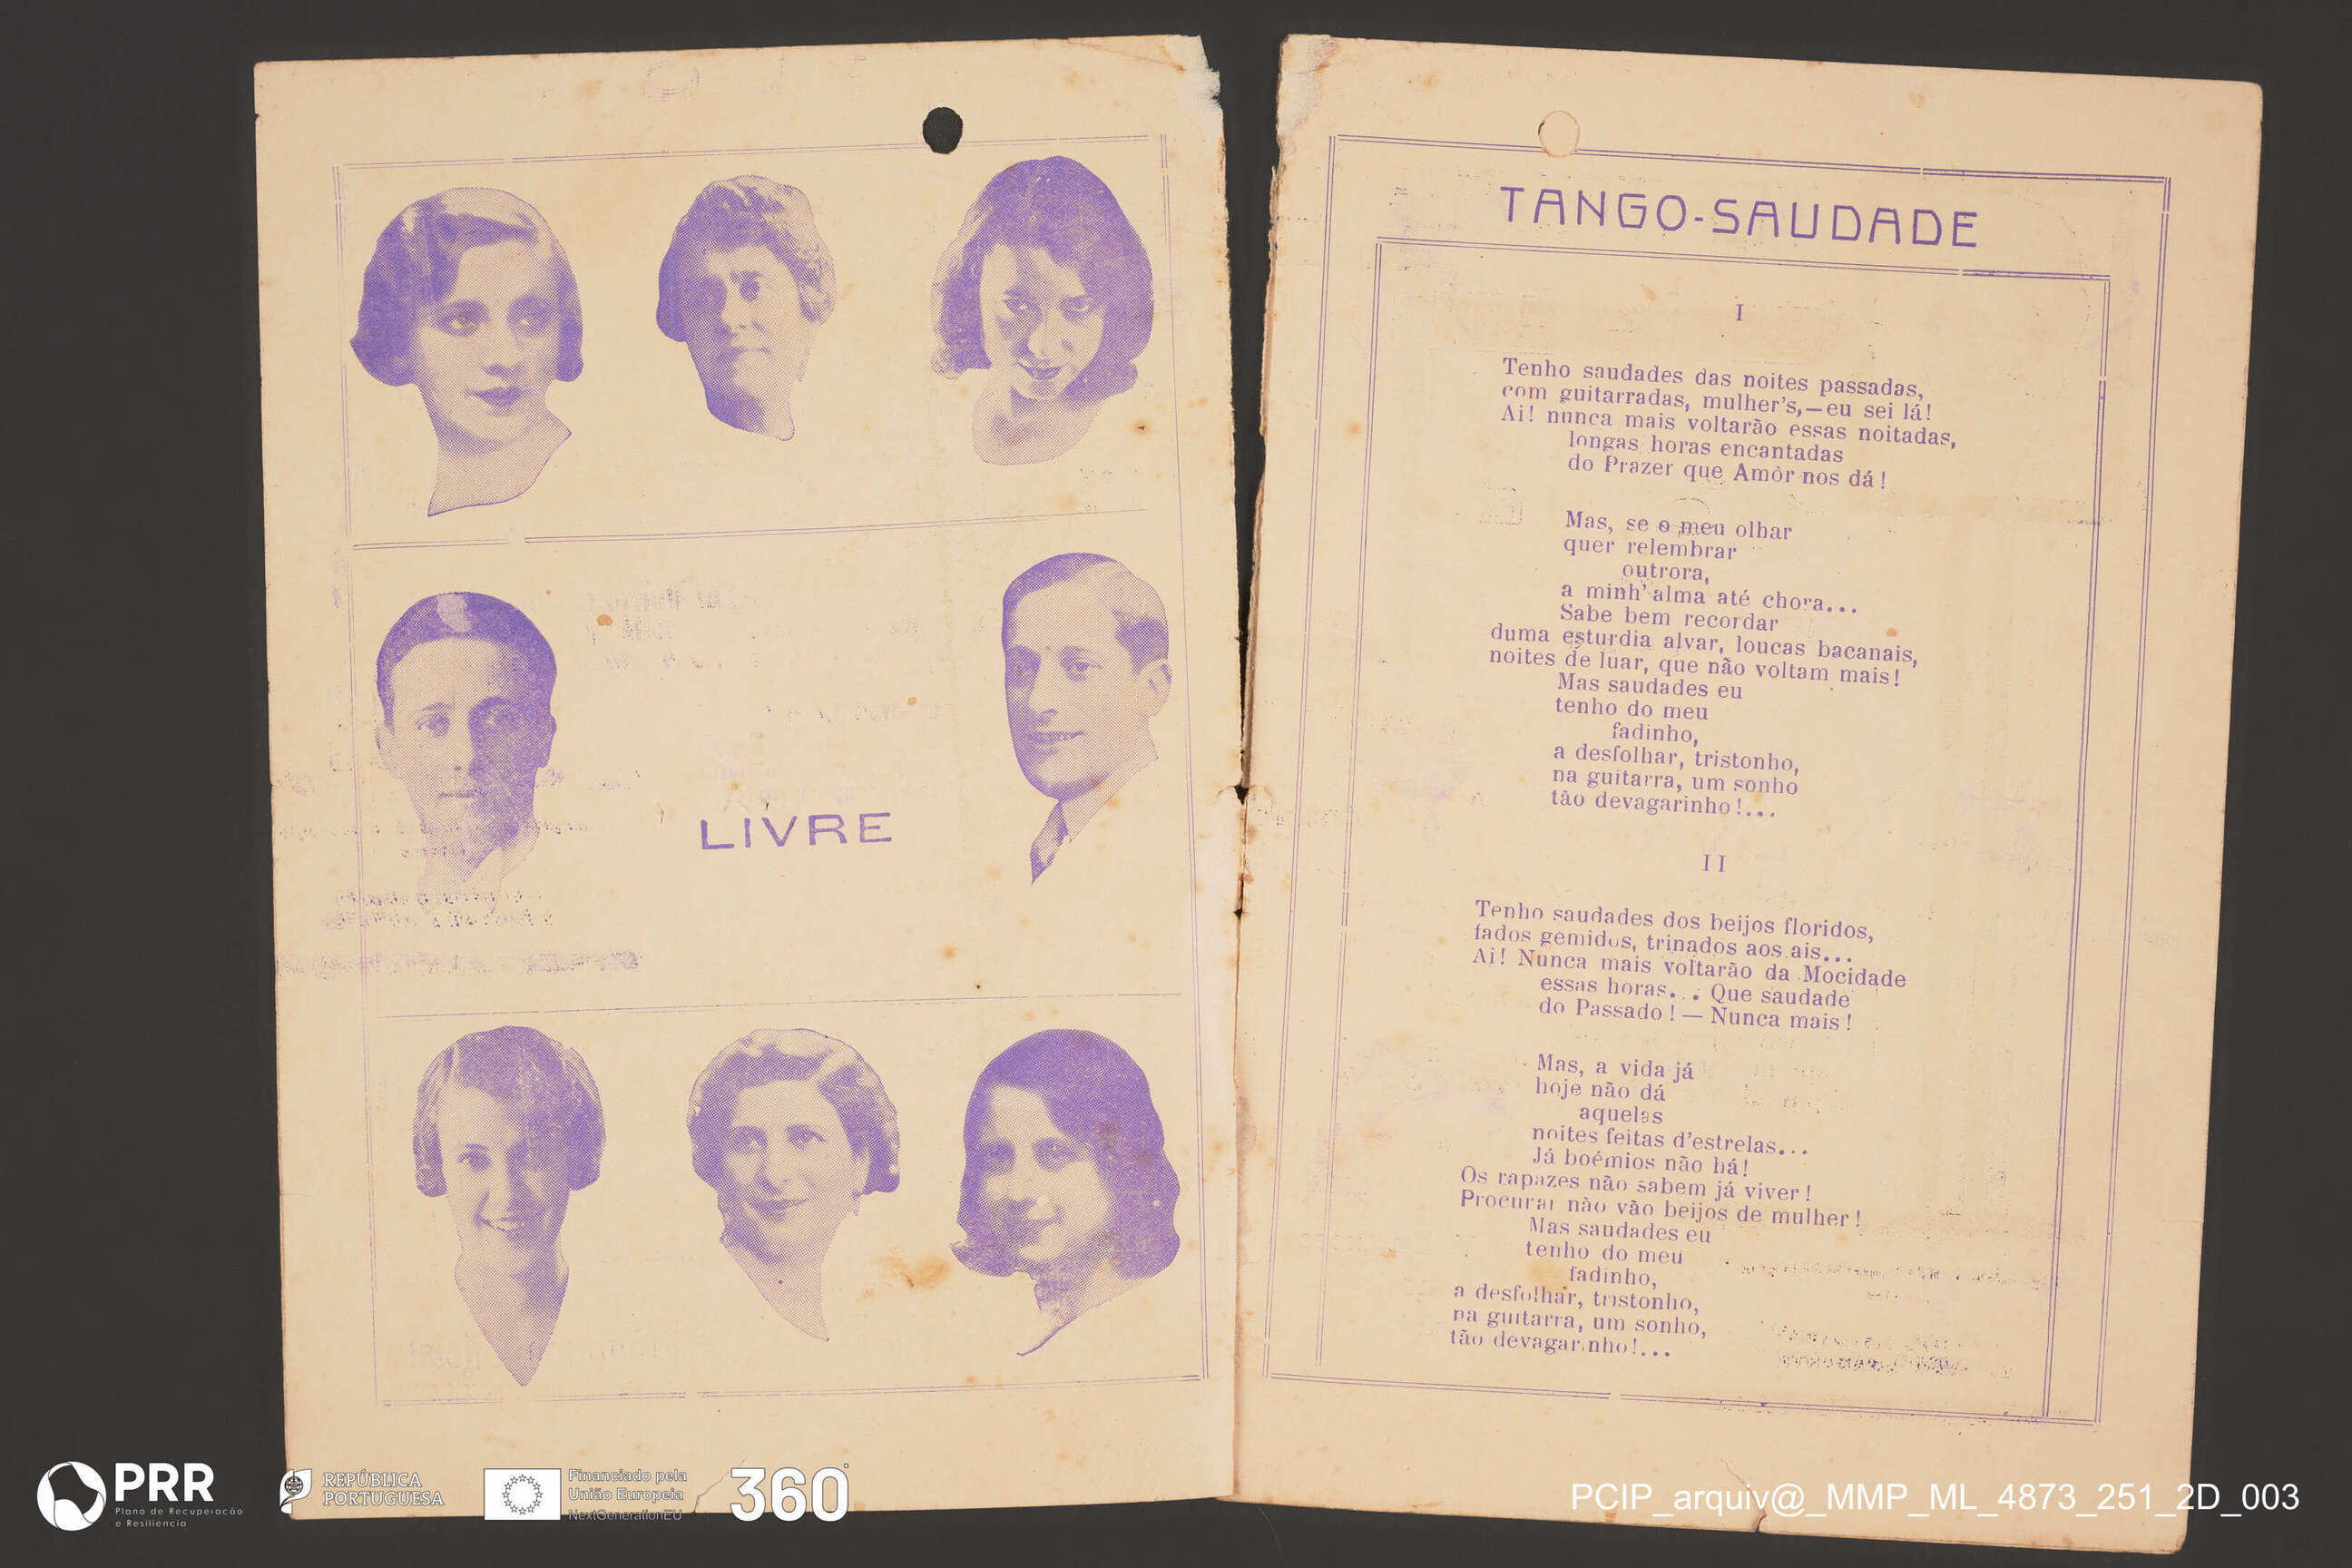 LIVRE
TANGO-SAUDADE
I
Tenho saudades das noites passadas,
com guitarradas, mulher's,—eu sei lá!
Ai! nunca mais voltarão essas noitadas,
longas horas encantadas
do Prazer que Amôr nos dá!
Mas, se o meu olhar
quer relembrar
outrora,
a minh'alma até chora...
Sabe bem recordar
duma esturdia alvar, loucas bacanais,
noites de luar, que não voltam mais!
Mas saudades eu
tenho do meu
fadinho,
a desfolhar, tristonho,
na guitarra, um sonho
tão devagarinho!...
II
Tenho saudades dos beijos floridos,
fados gemidos, trinados aos ais...
Ai! Nunca mais voltarão da Mocidade
essas horas... Que saudade
do Passado! — Nunca mais!
Mas, a vida já
hoje não dá
aquelas
noites feitas d'estrelas...
Já boémios não há!
Os rapazes não sabem já viver!
Procurar não vão beijos de mulher!
Mas saudades eu
tenho do meu
fadinho,
a desfolhar, tristonho,
na guitarra, um sonho,
tão devagarinho!...
PRR
Plano de Recuperação
e Resiliência
REPÚBLICA
PORTUGUESA
Financiado pela
União Europeia
NextGenerationEU
360°
PCIP_arquiv@_MMP_ML_4873_251_2D_003